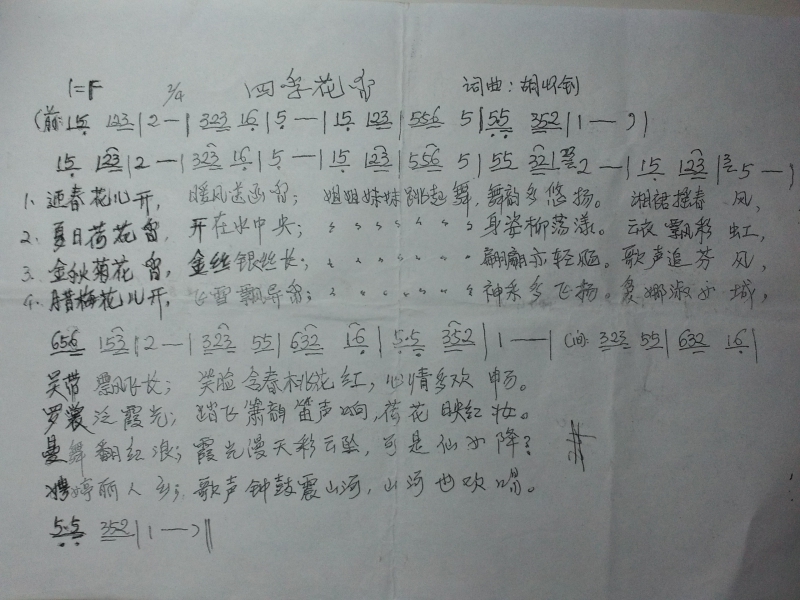 1=F 2/4 四季花香 词曲:胡怀钊
(前: 15 123|2 —|323 16|5 —|15 123|556 5|55 352|1 — )|
15 123|2 —|323 16|5 —|15 123|556 5|55 321|2 —|15 123|5 —|
1. 迎春花儿开, 暖风送幽香; 姐姐妹妹跳起舞, 舞韵多悠扬。湘裙摆春风,
2. 夏日荷花香, 开在水中央; 〃 〃 〃 〃 〃 身姿柳荡漾。云衣飘彩虹,
3. 金秋菊花香, 金丝银丝长; 〃 〃 〃 〃 〃 翩翩亦轻飏。歌声追芬风,
4. 腊梅花儿开, 飞雪飘异香; 〃 〃 〃 〃 〃 神采多飞扬。娜淑女城,
656 153|2 —|323 55|632 16|5·5 352|1 —|(间: 323 55|632 16|
吴带飘飘长; 笑脸含春桃花红, 心情多欢畅。
罗裳泛霞光; 踏飞箫韵笛声响, 荷花映红妆。
曼舞翻红浪; 霞光漫天彩云坠, 可是仙女降?
娉婷丽人乡; 歌声钟鼓震山河, 山河也欢唱。
5·5 352|1 — )‖